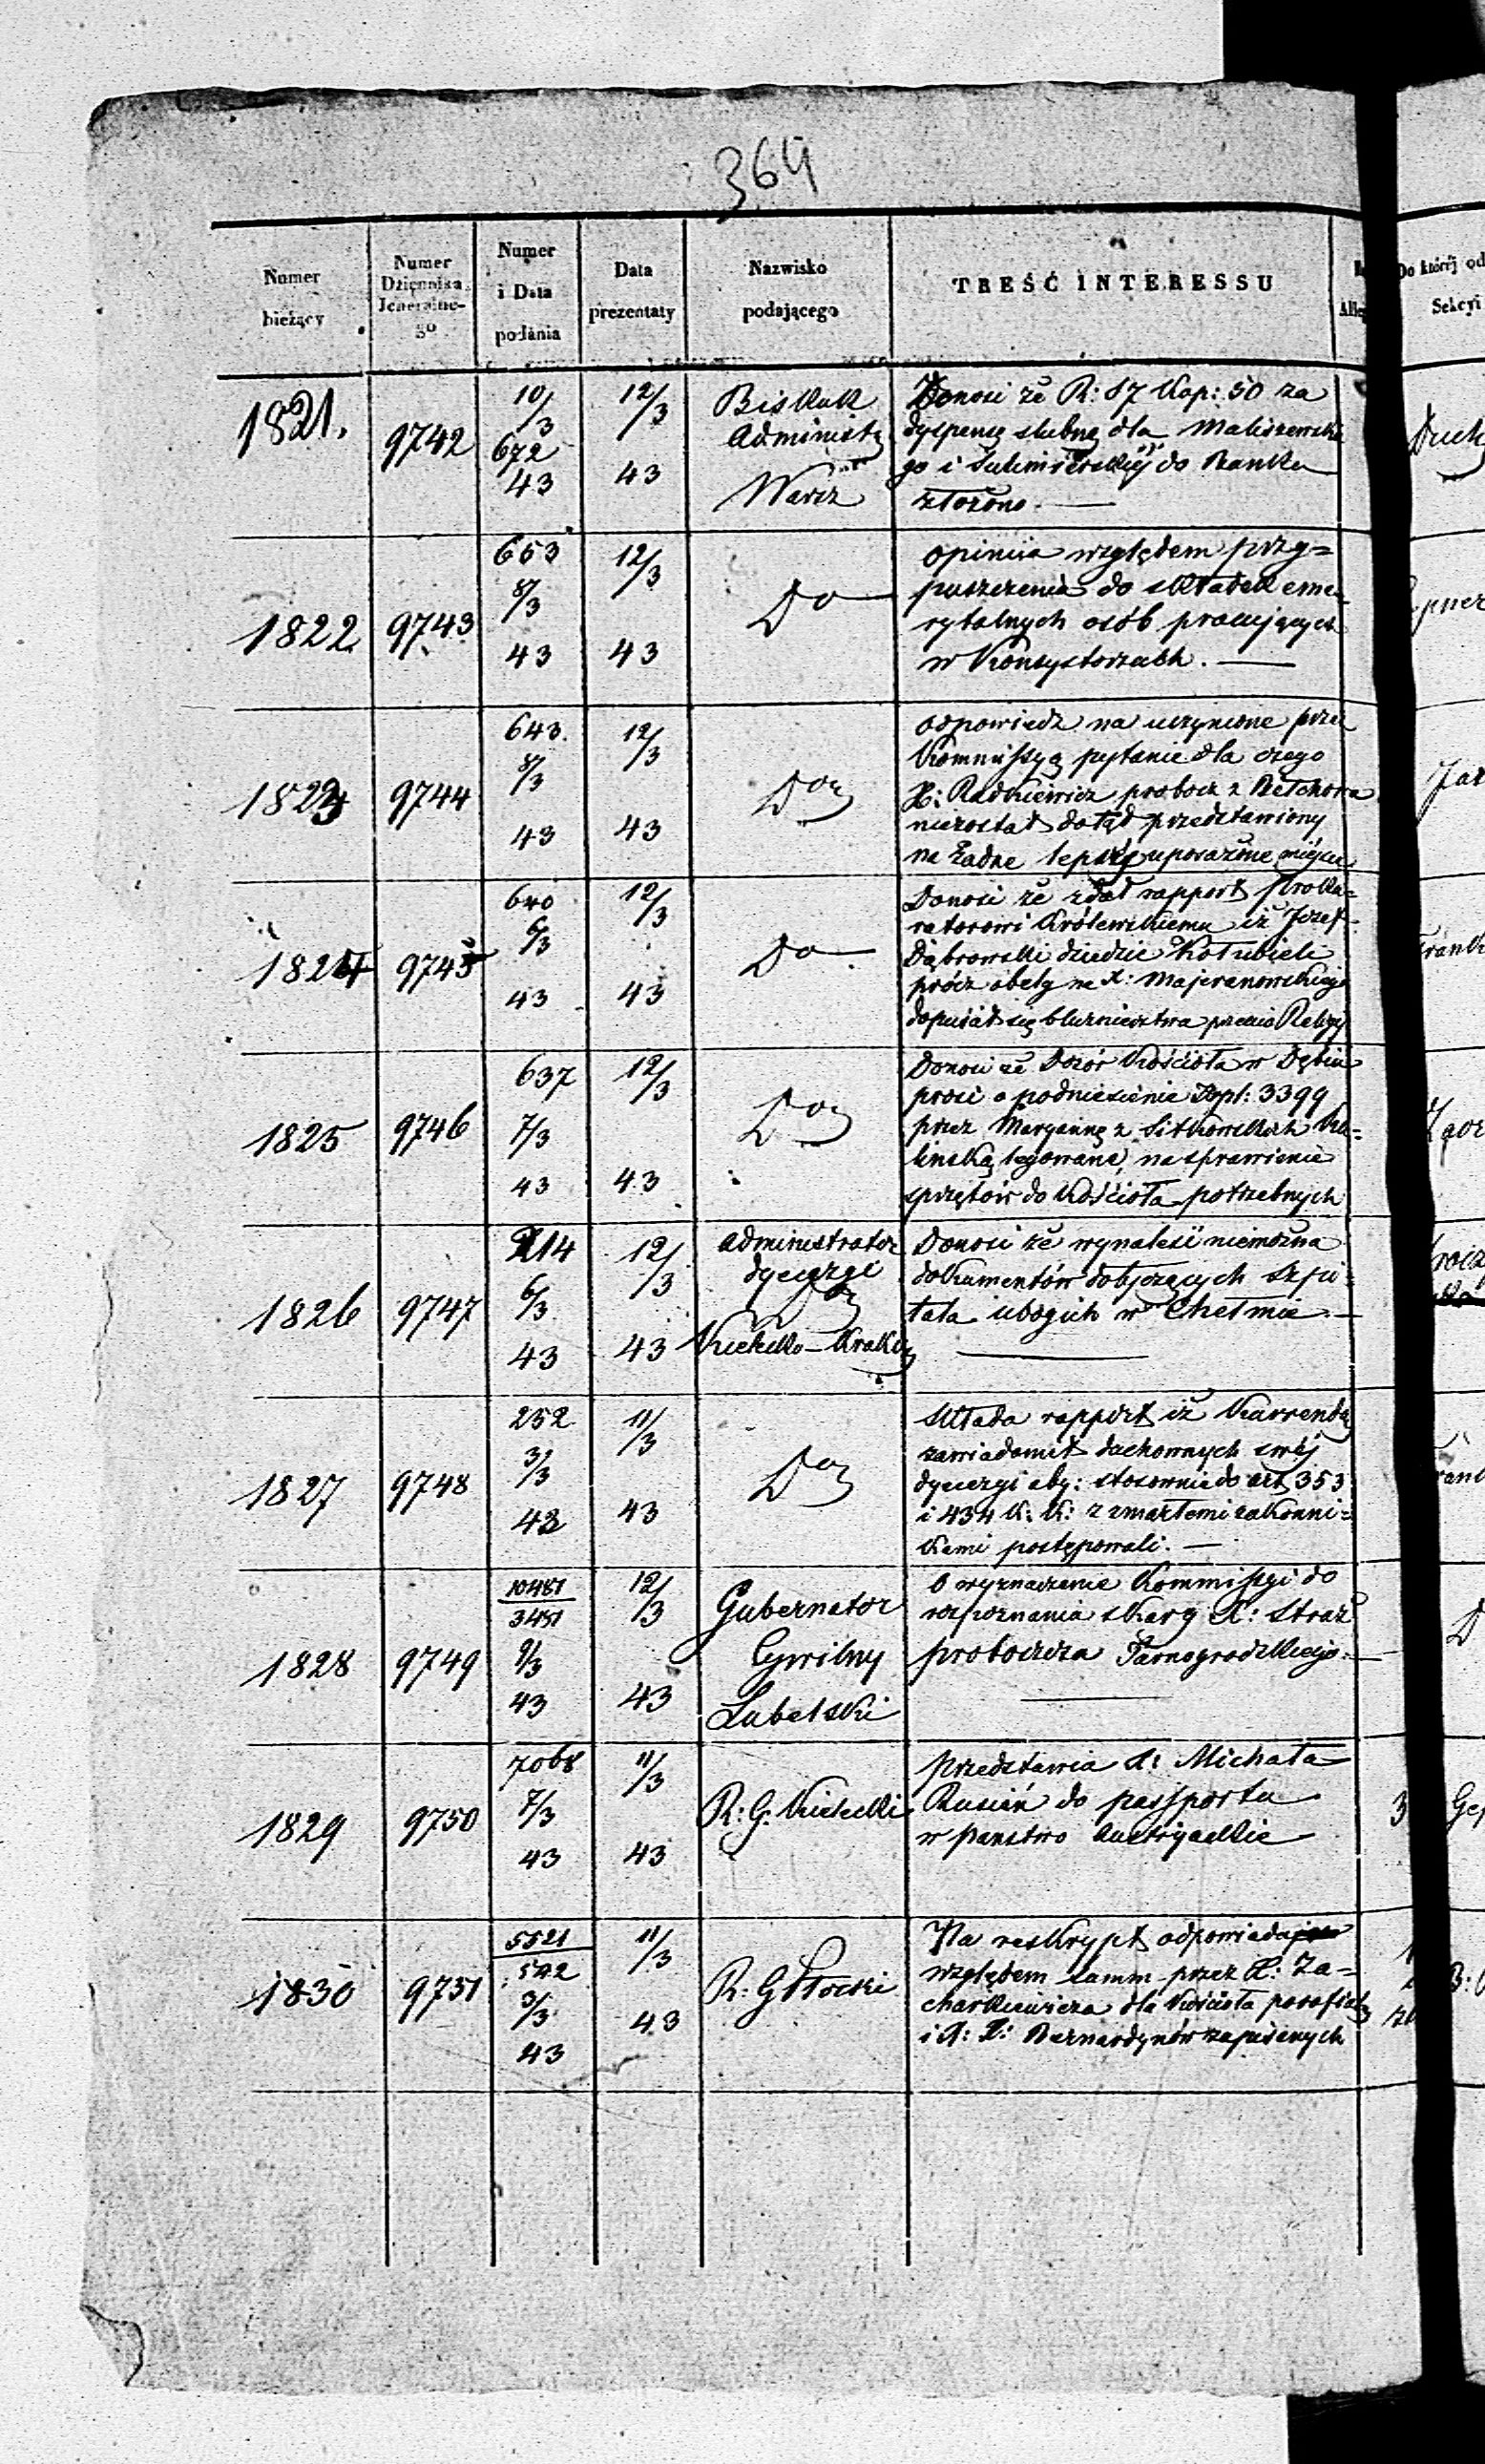 364
Numer bieżący
Numer Dziennika Jeneralnego
Numer i Data podania
Data prezentaty
Nazwisko podającego
TREŚĆ INTERESSU
Do któréj od
Sekcyi
1821.
9742
10/3
672
43
12/3
43
Biskuk
Administ
Warsz
Donosi że R: 87 Kop: 50 za
dyspensę slubną dla Maliszewskie
go i Sulimierskiéj do Banku
złożono. —
1822
9743
653
8/3
43
12/3
43
Do
opiniia względem przy=
puszczenia do składek eme
rytalnych osób pracujących
w Konsystorzach. —
1823
9744
643.
8/3
43
12/3
43
Do
odpowiedz na uczynione prze
Kommissyą pytanie dla czego
X: Radkiewicz probosz z Bełchowa
niezostał dotąd przedstawiony
na żadne lepiéj uposażone miejsce
1824
9745
640
6/3
43
12/3
43
Do
Donosi że zdał rapport proku=
ratorowi Królewskiemu iż Józef
Dąbrowski dziedzic Kołubieli
prócz obelg na X: Majeranowskiego
dopuścił się bluznierstwa przeciw Religij
1825
9746
637
7/3
43
12/3
43
Do
Donosi że Dozór Kościoła w Dębiu
prosi o podniesienie Złpl: 3399
przez Maryannę z Sitkowskich Ka=
linską legowane, na sprawienie
sprzętów do Kościoła potrzebnych
1826
9747
214
6/3
43
12/3
43
Administrator
dyecezyi
Kielecko-Krako
Donosi że wynaleść niemożna
dokumentów dotyczących Szpi=
tala ubogich w Chełmie. —
1827
9748
252
3/3
43
11/3
43
Do
Składa rapport iż Kurrendą
zawiadomił duchownych swéj
dyecezyi aby: stosownie do art 353
i 434 K: K: z zmarłemi zakonni=
kami postępowali. —
1828
9749
10481
3451
9/3
43
12/3
43
Gubernator
Cywilny
Lubelski
O wyznaczenie Kommissyi do
rozpoznania skarg X: Straż
proboszcza Tarnogrodzkiego. —
1829
9750
7068
7/3
43
11/3
43
R: G. Kielecki
przedstawia X: Michała
Rusiań do passportu
w panstwo Austryackie
3
1830
9751
5521
542
3/3
43
11/3
43
R: G Płocki
Na reskrypt odpowiada
względem summ przez X: Za=
charkiewicza dla Kościoła parafial
i X: X: Bernardynów zapisanych